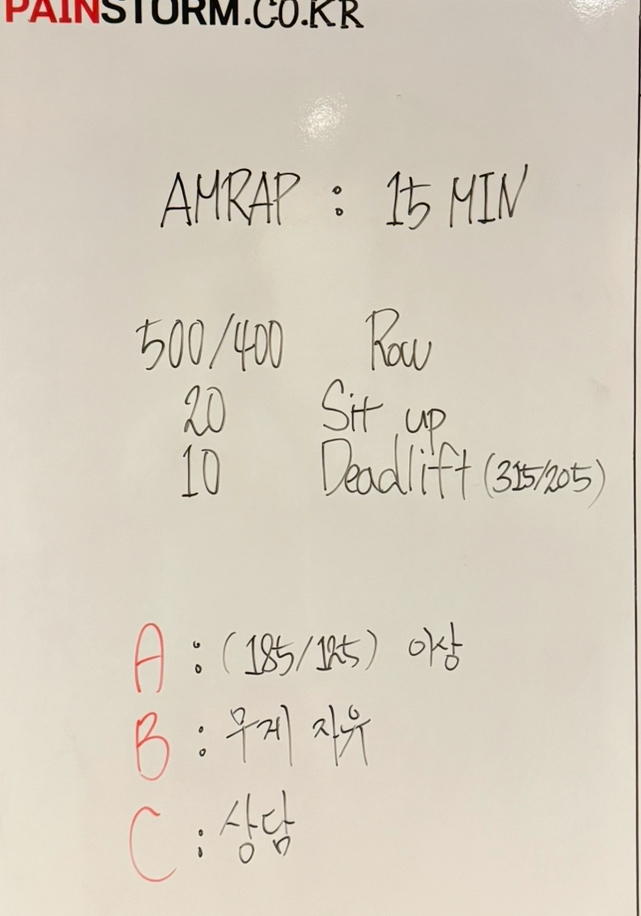 PAINSTORM.CO.KR
AMRAP : 15 MIN
500/400 Row
20 Sit up
10 Deadlift (315/205)
A : (185/125) 이상
B : 무게 자유
C : 상담